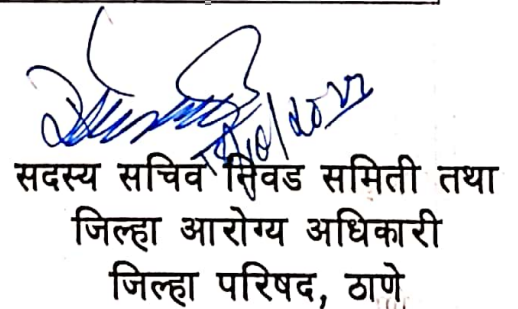 सदस्य सचिव निवड समिती तथा
जिल्हा आरोग्य अधिकारी
जिल्हा परिषद, ठाणे